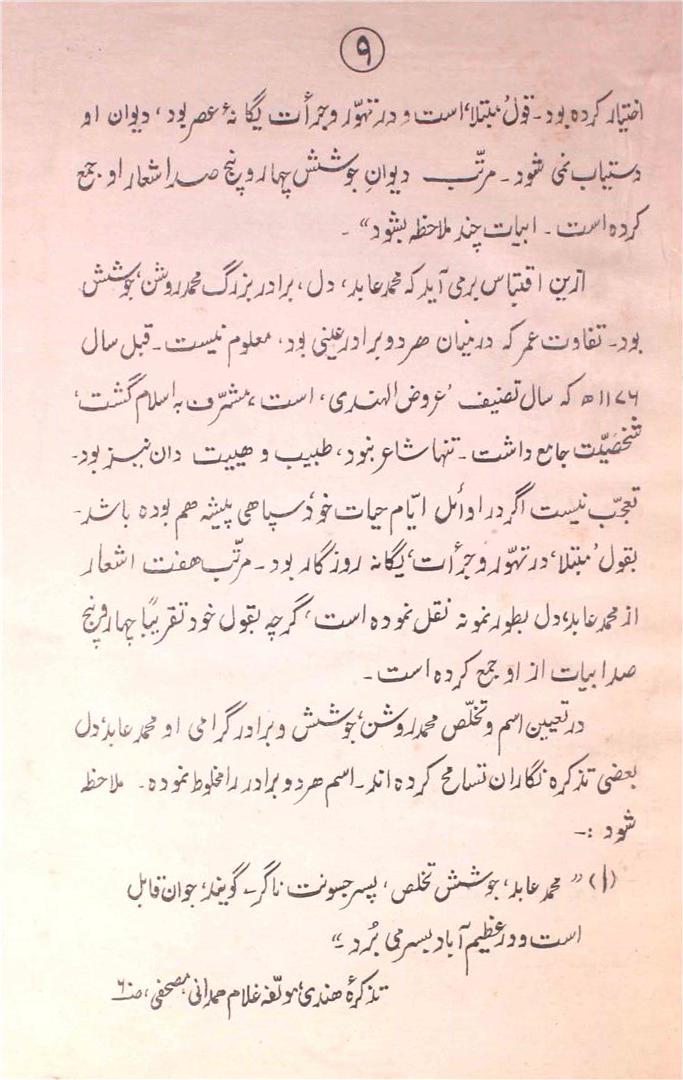 ۹
اختیار کرده بود۔ قولِ مبتلا، است و در تهوّر و جرأت یگانهٔ عصر بود، دیوان او
دستیاب نمی شود۔ مرتّب دیوانِ جوشش چهار و پنج صد اشعار او جمع
کرده است۔ ابیات چند ملاحظه بشود"۔
ازین اقتباس برمی آید که محمد عابد، دل، برادر بزرگ محمد روشن، جوشش
بود۔ تفاوت عمر که درمیان هردو برادر عینی بود، معلوم نیست۔ قبل سال
۱۱۷۶ھ که سال تصنیف 'عروض الهندی، است، مشرّف به اسلام گشت،
شخصیّت جامع داشت۔ تنها شاعر بنود، طبیب و هییت دان نیز بود۔
تعجّب نیست اگر در اوائل ایّام حیات خود سپاهی پیشه هم بوده باشد۔
بقول 'مبتلا، در تهوّر و جرأت، یگانه روزگار بود۔ مرتّب هفت اشعار
از محمد عابد، دل بطور نمونه نقل نموده است، گرچه بقول خود تقریباً چهار و پنج
صد ابیات از او جمع کرده است۔
در تعیین اسم و تخلّص محمد روشن، جوشش و برادر گرامی او محمد عابد، دل
بعضی تذکره نگاران تسامح کرده اند۔ اسم هردو برادر را مخلوط نموده۔ ملاحظه
شود :-
(۱) "محمد عابد، جوشش تخلص، پسر جسونت ناگر۔ گویند، جوان قابل
است و در عظیم آباد بسر می بُرد۔"
تذکرهٔ هندی، مولّفه غلام همدانی، مصحفی، صـ ۶